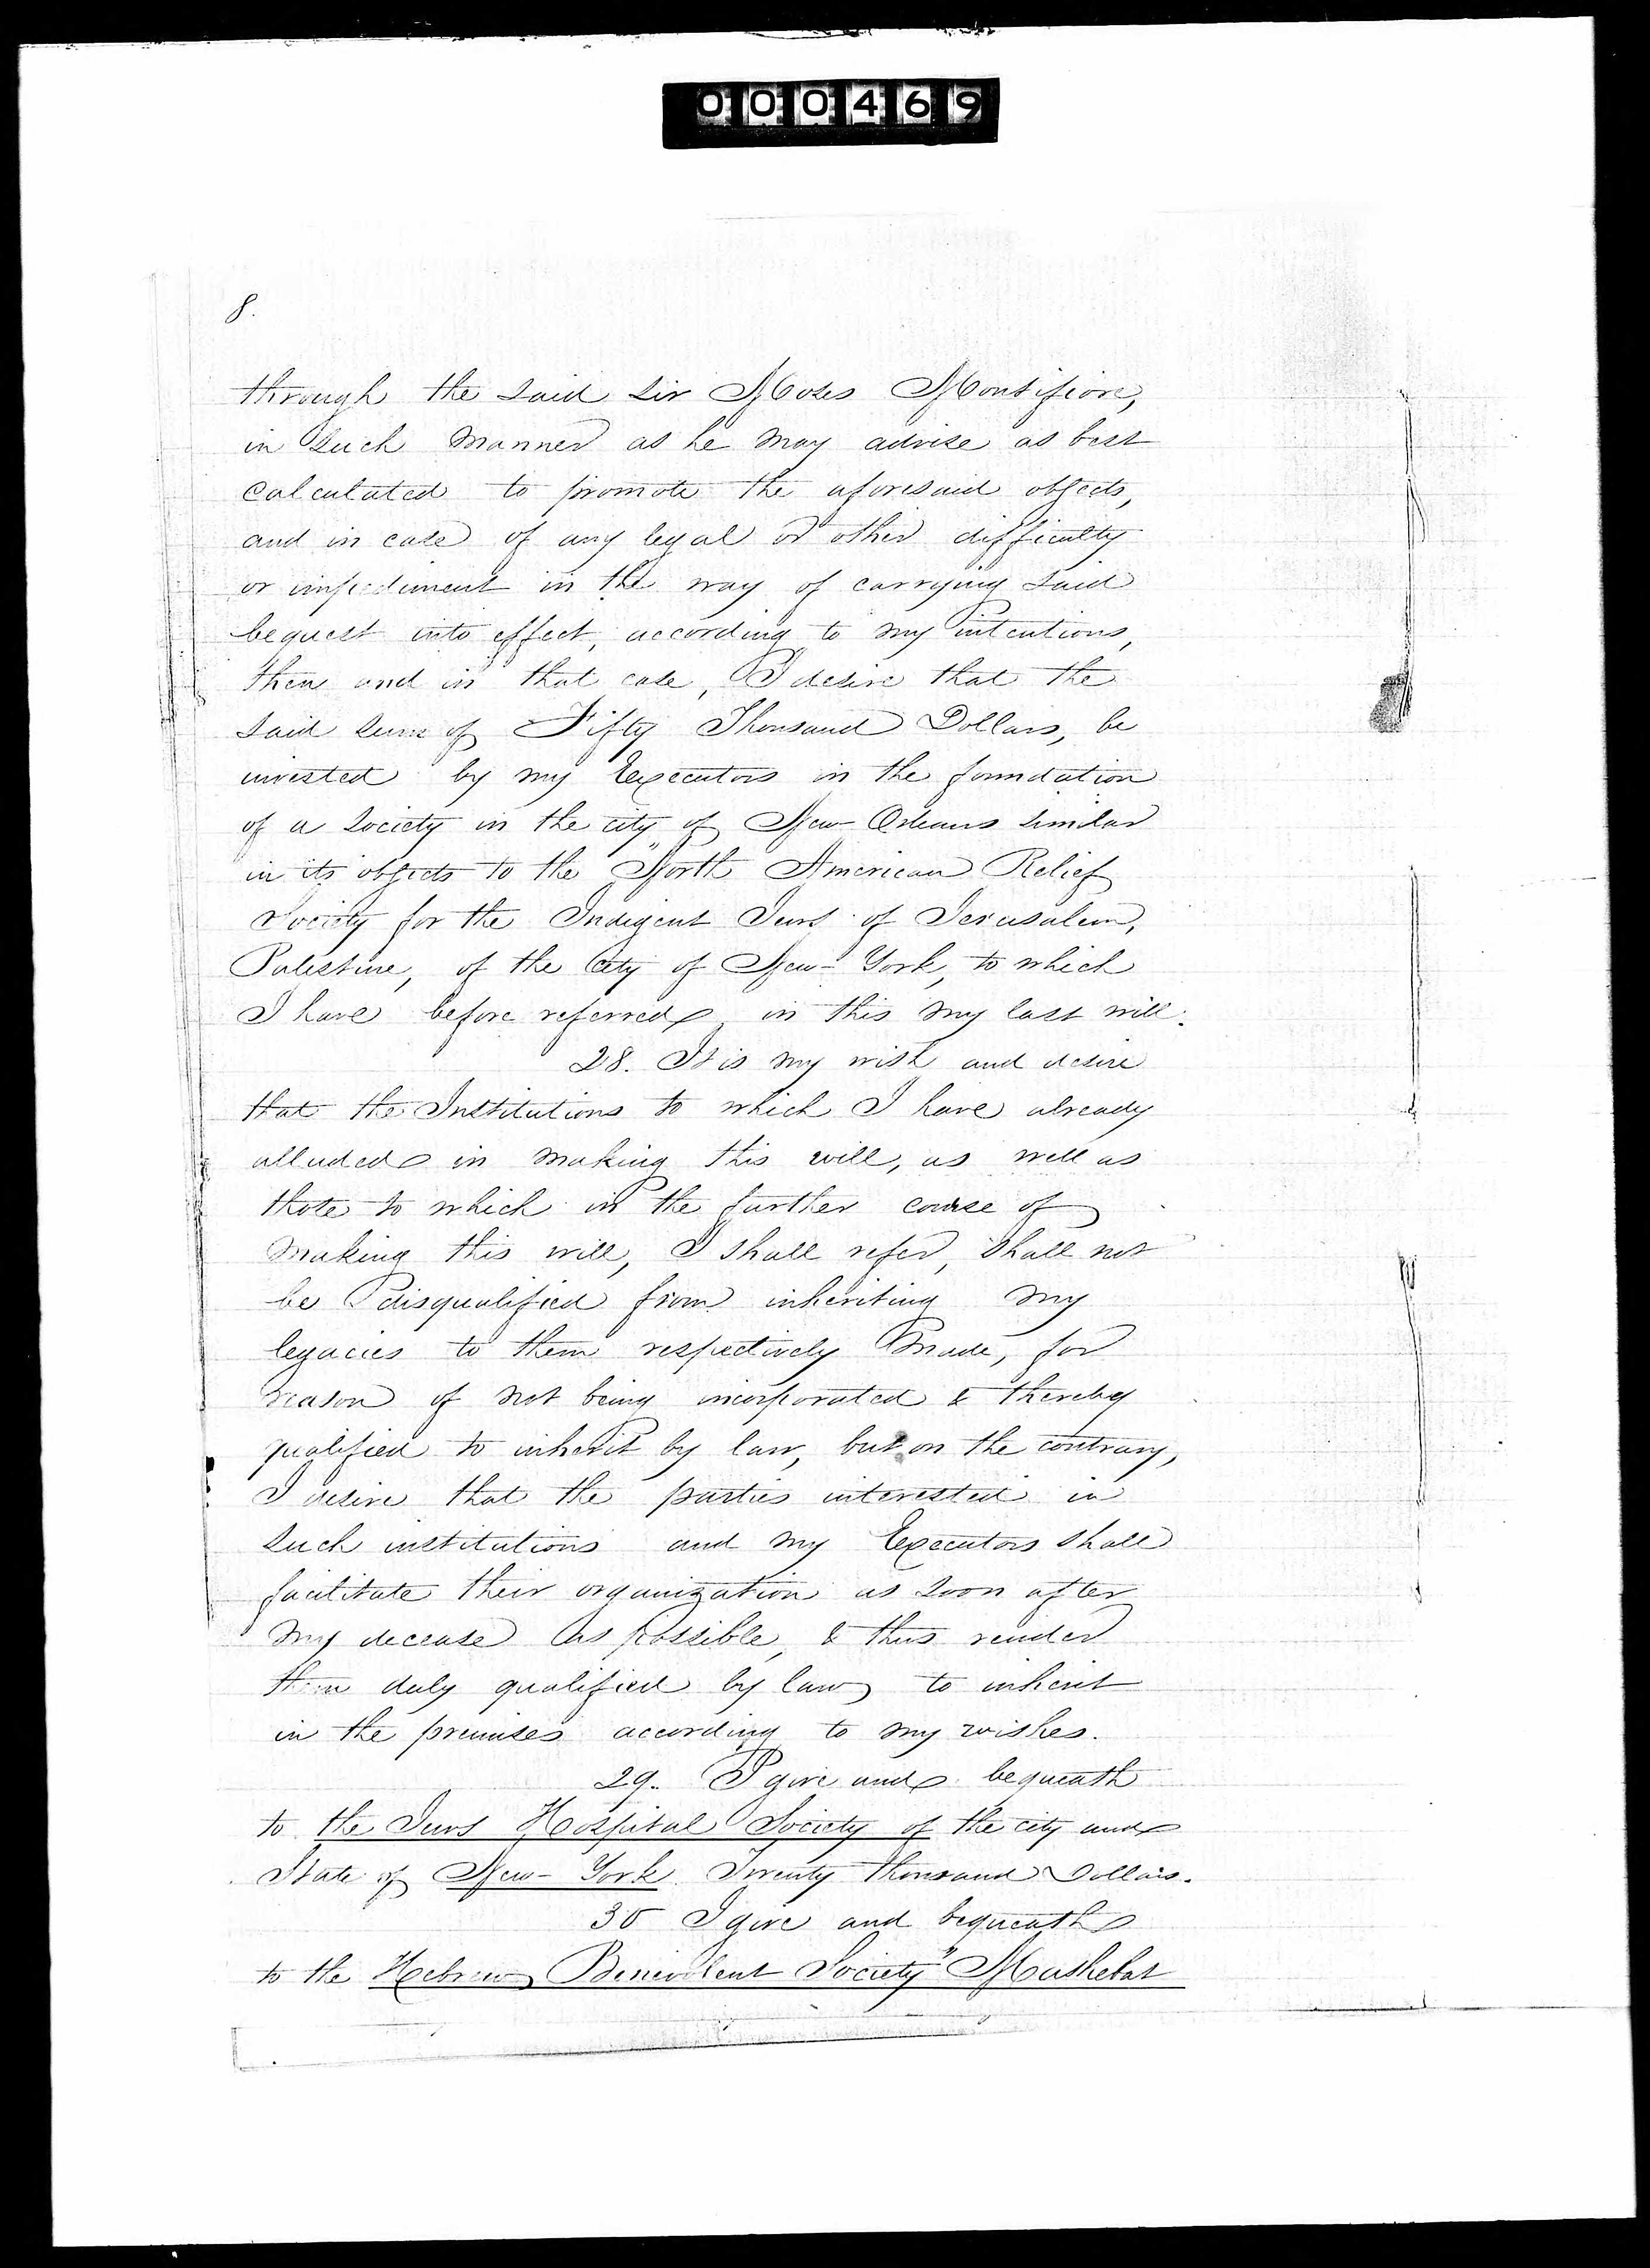 000469
8.
through the said Sir Moses Montifiore,
in such manner as he may advise as best
calculated to promote the aforesaid objects,
and in case of any legal or other difficulty
or impediment in the way of carrying said
bequest into effect, according to my intentions,
then and in that case, I desire that the
said sum of Fifty Thousand Dollars, be
invested by my Executors in the foundation
of a Society in the city of New Orleans similar
in its objects to the "North American Relief
Society for the Indigent Jews of Jerusalem,
Palestine, of the City of New-York, to which
I have before referred, in this my last will.
28. It is my wish and desire
that the Institutions to which I have already
alluded in making this will, as well as
those to which in the further course of
making this will, I shall refer, shall not
be disqualified from inheriting my
legacies to them respectively made, for
reason of not being incorporated & thereby
qualified to inherit by law, but on the contrary,
I desire that the parties interested in
such institutions and my Executors shall
facilitate their organization as soon after
my decease as possible, & thus render
them duly qualified by law to inherit
in the premises according to my wishes.
29. I give and bequeath
to the Jews Hospital Society of the city and
State of New-York Twenty Thousand Dollars.
30 I give and bequeath
to the Hebrew Benevolent Society "Mashebat